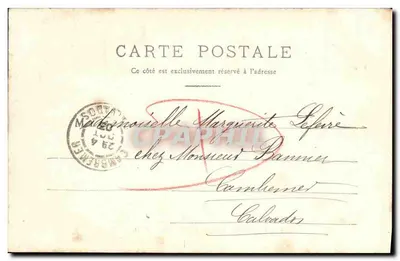 CARTE POSTALE
Ce côté est exclusivement réservé à l'adresse
Mademoiselle Marguerite Lefèvre
chez Monsieur
Cambremer
Calvados
CAMBREMER
CALVADOS
29 4
OCT
03
CPAPHIL